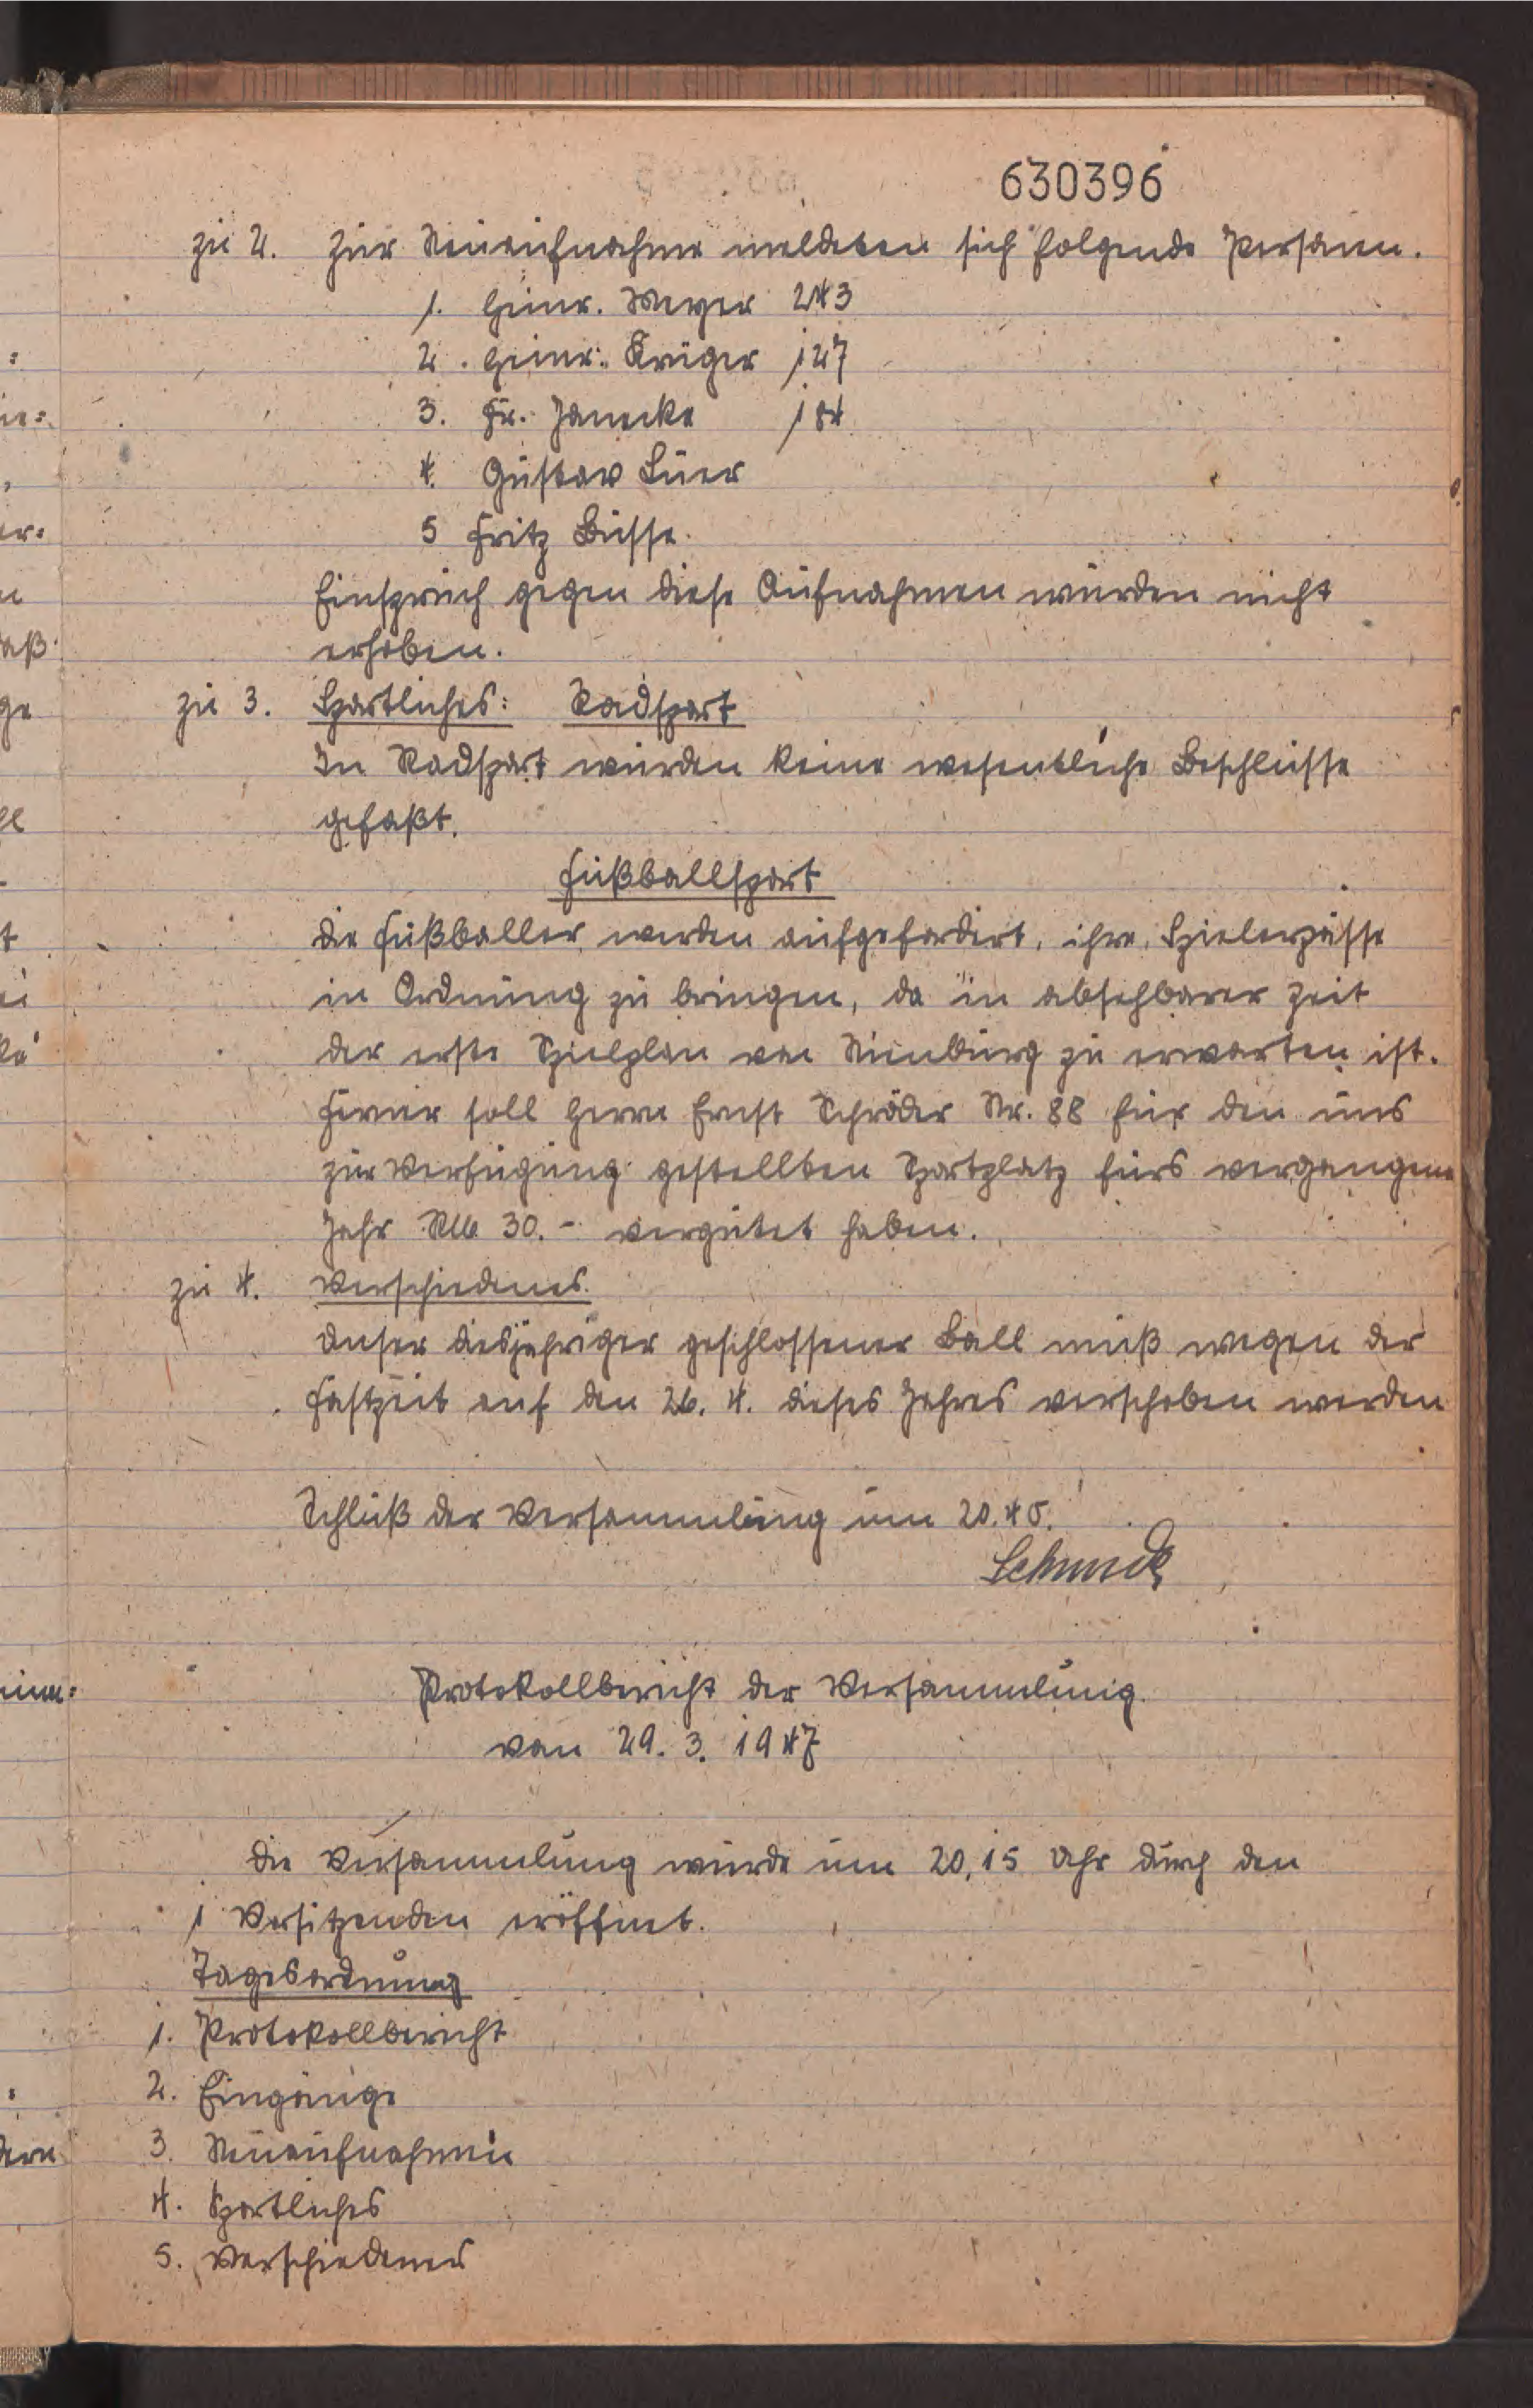 630396
zu 2. Zur Neuaufnahme meldeten sich folgende Personen.
1. Heinr. Meyer 243
2. Heinr. Krüger 127
3. Fr. Janecke 184
4. Gustav Lüer
5 Fritz Busse.
Einspruch gegen diese Aufnahmen wurden nicht
erhoben.
zu 3. Sportliches: Radsport
In Radsport wurden keine wesentliche Beschlüsse
gefaßt.
Fußballsport
Die Fußballer werden aufgefordert, ihre Spielerpässe
in Ordnung zu bringen, da in absehbarer Zeit
der erste Spielplan von Nienburg zu erwarten ist.
Ferner soll Herrn Ernst Schröder Nr. 88 für den uns
zur Verfügung gestellten Sportplatz fürs vergangene
Jahr RM 30.- vergütet haben.
zu 4. Verschiedenes.
Unser diesjähriger geschlossener Ball muß wegen der
Fastzeit auf den 26. 4. dieses Jahres verschoben werden
Schluß der Versammlung um 20.45.
Protokollbericht der Versammlung.
von 29. 3. 1947
Die Versammlung wurde um 20,15 Uhr durch den
1 Vorsitzenden eröffnet.
Tagesordnung
1. Protokollbericht
2. Eingänge
3. Neuaufnahmen
4. Sportliches
5. Verschiedenes